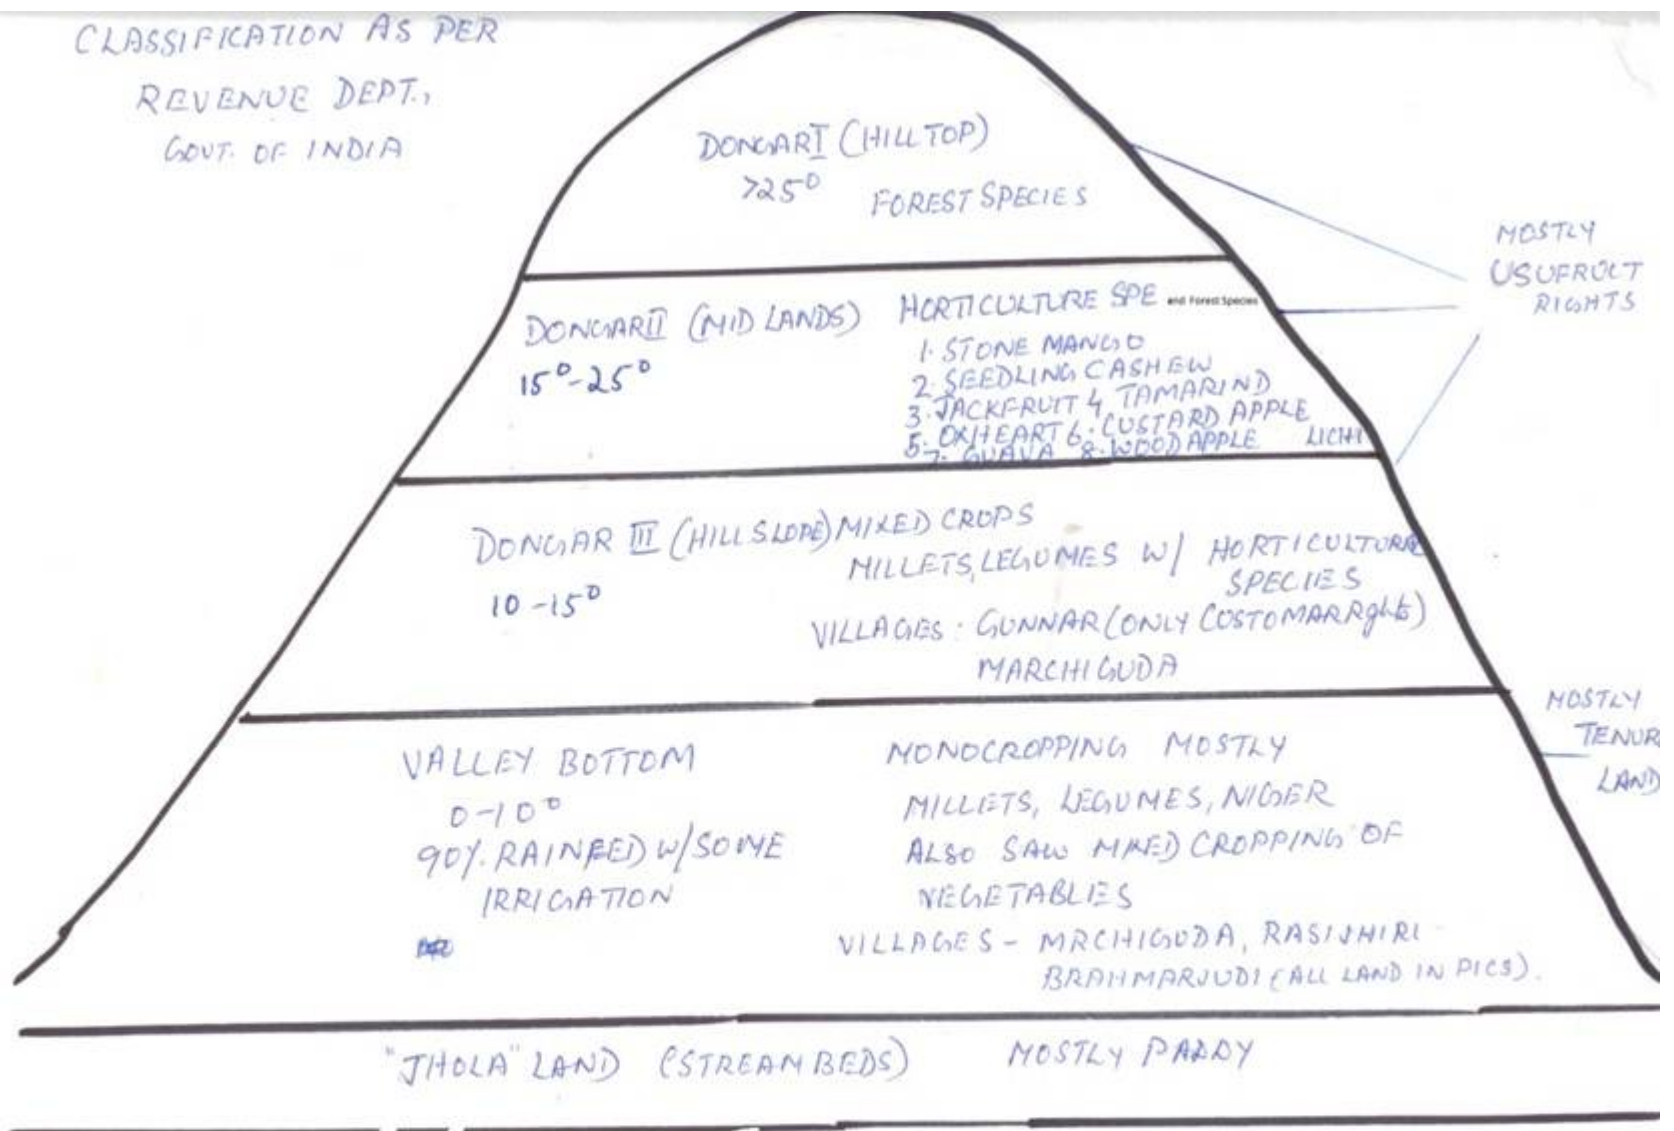 CLASSIFICATION AS PER
REVENUE DEPT.,
GOVT. OF INDIA
DONGAR I (HILL TOP)
>25° FOREST SPECIES
MOSTLY
USUFRUCT
RIGHTS
DONGAR II (MID LANDS)
15°-25°
HORTICULTURE SPE and Forest Species
1. STONE MANGO
2. SEEDLING CASHEW
3. JACKFRUIT 4 TAMARIND
5. OXHEART 6. CUSTARD APPLE
7. GUAVA 8. WOOD APPLE LICHI
DONGAR III (HILL SLOPE) MIXED CROPS
10-15°
MILLETS, LEGUMES W/ HORTICULTURE
SPECIES
VILLAGES: GUNNAR (ONLY COSTOMARRghts)
MARCHIGUDA
MOSTLY
TENUR
LAND
VALLEY BOTTOM
0-10°
90%. RAINFED W/SOME
IRRIGATION
MONOCROPPING MOSTLY
MILLETS, LEGUMES, NIGER
ALSO SAW MIXED CROPPING OF
VEGETABLES
VILLAGES - MRCHIGUDA, RASIJHIRI
BRAHMARJUDI (ALL LAND IN PICS).
"JHOLA" LAND (STREAM BEDS) MOSTLY PADDY